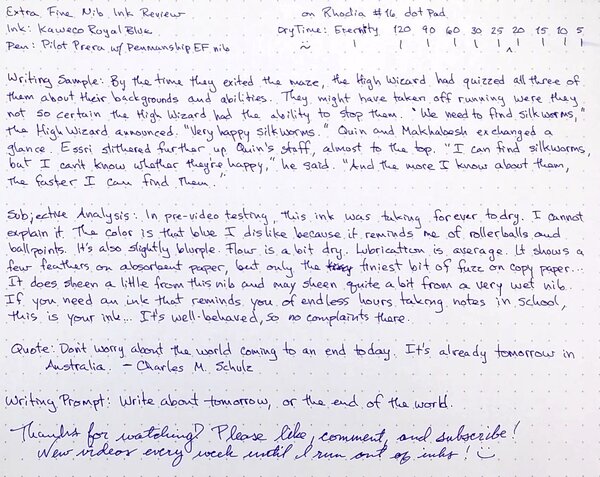 Extra Fine Nib Ink Review on Rhodia #16 dot Pad
Ink: Kaweco Royal Blue Dry Time: Eternity 120 90 60 30 25 20 15 10 5
Pen: Pilot Prera w/ Penmanship EF nib ~ | | | | | | | | |
Writing Sample: By the time they exited the maze, the High Wizard had quizzed all three of
them about their backgrounds and abilities. They might have taken off running were they
not so certain the High Wizard had the ability to stop them. "We need to find silkworms,"
the High Wizard announced. "Very happy silkworms." Quin and Makhabesh exchanged a
glance. Essri slithered further up Quin's staff, almost to the top. "I can find silkworms,
but I can't know whether they're happy," he said. "And the more I know about them,
the faster I can find them."
Subjective Analysis: In pre-video testing, this ink was taking forever to dry. I cannot
explain it. The color is that blue I dislike because it reminds me of rollerballs and
ballpoints. It's also slightly blurple. Flow is a bit dry. Lubrication is average. It shows a
few feathers on absorbent paper, but only the tiniest bit of fuzz on copy paper...
It does sheen a little from this nib and may sheen quite a bit from a very wet nib.
If you need an ink that reminds you of endless hours taking notes in school,
this is your ink... It's well-behaved, so no complaints there.
Quote: Don't worry about the world coming to an end today. It's already tomorrow in
Australia. - Charles M. Schulz
Writing Prompt: Write about tomorrow, or the end of the world.
Thanks for watching! Please like, comment, and subscribe!
New videos every week until I run out of inks! :)